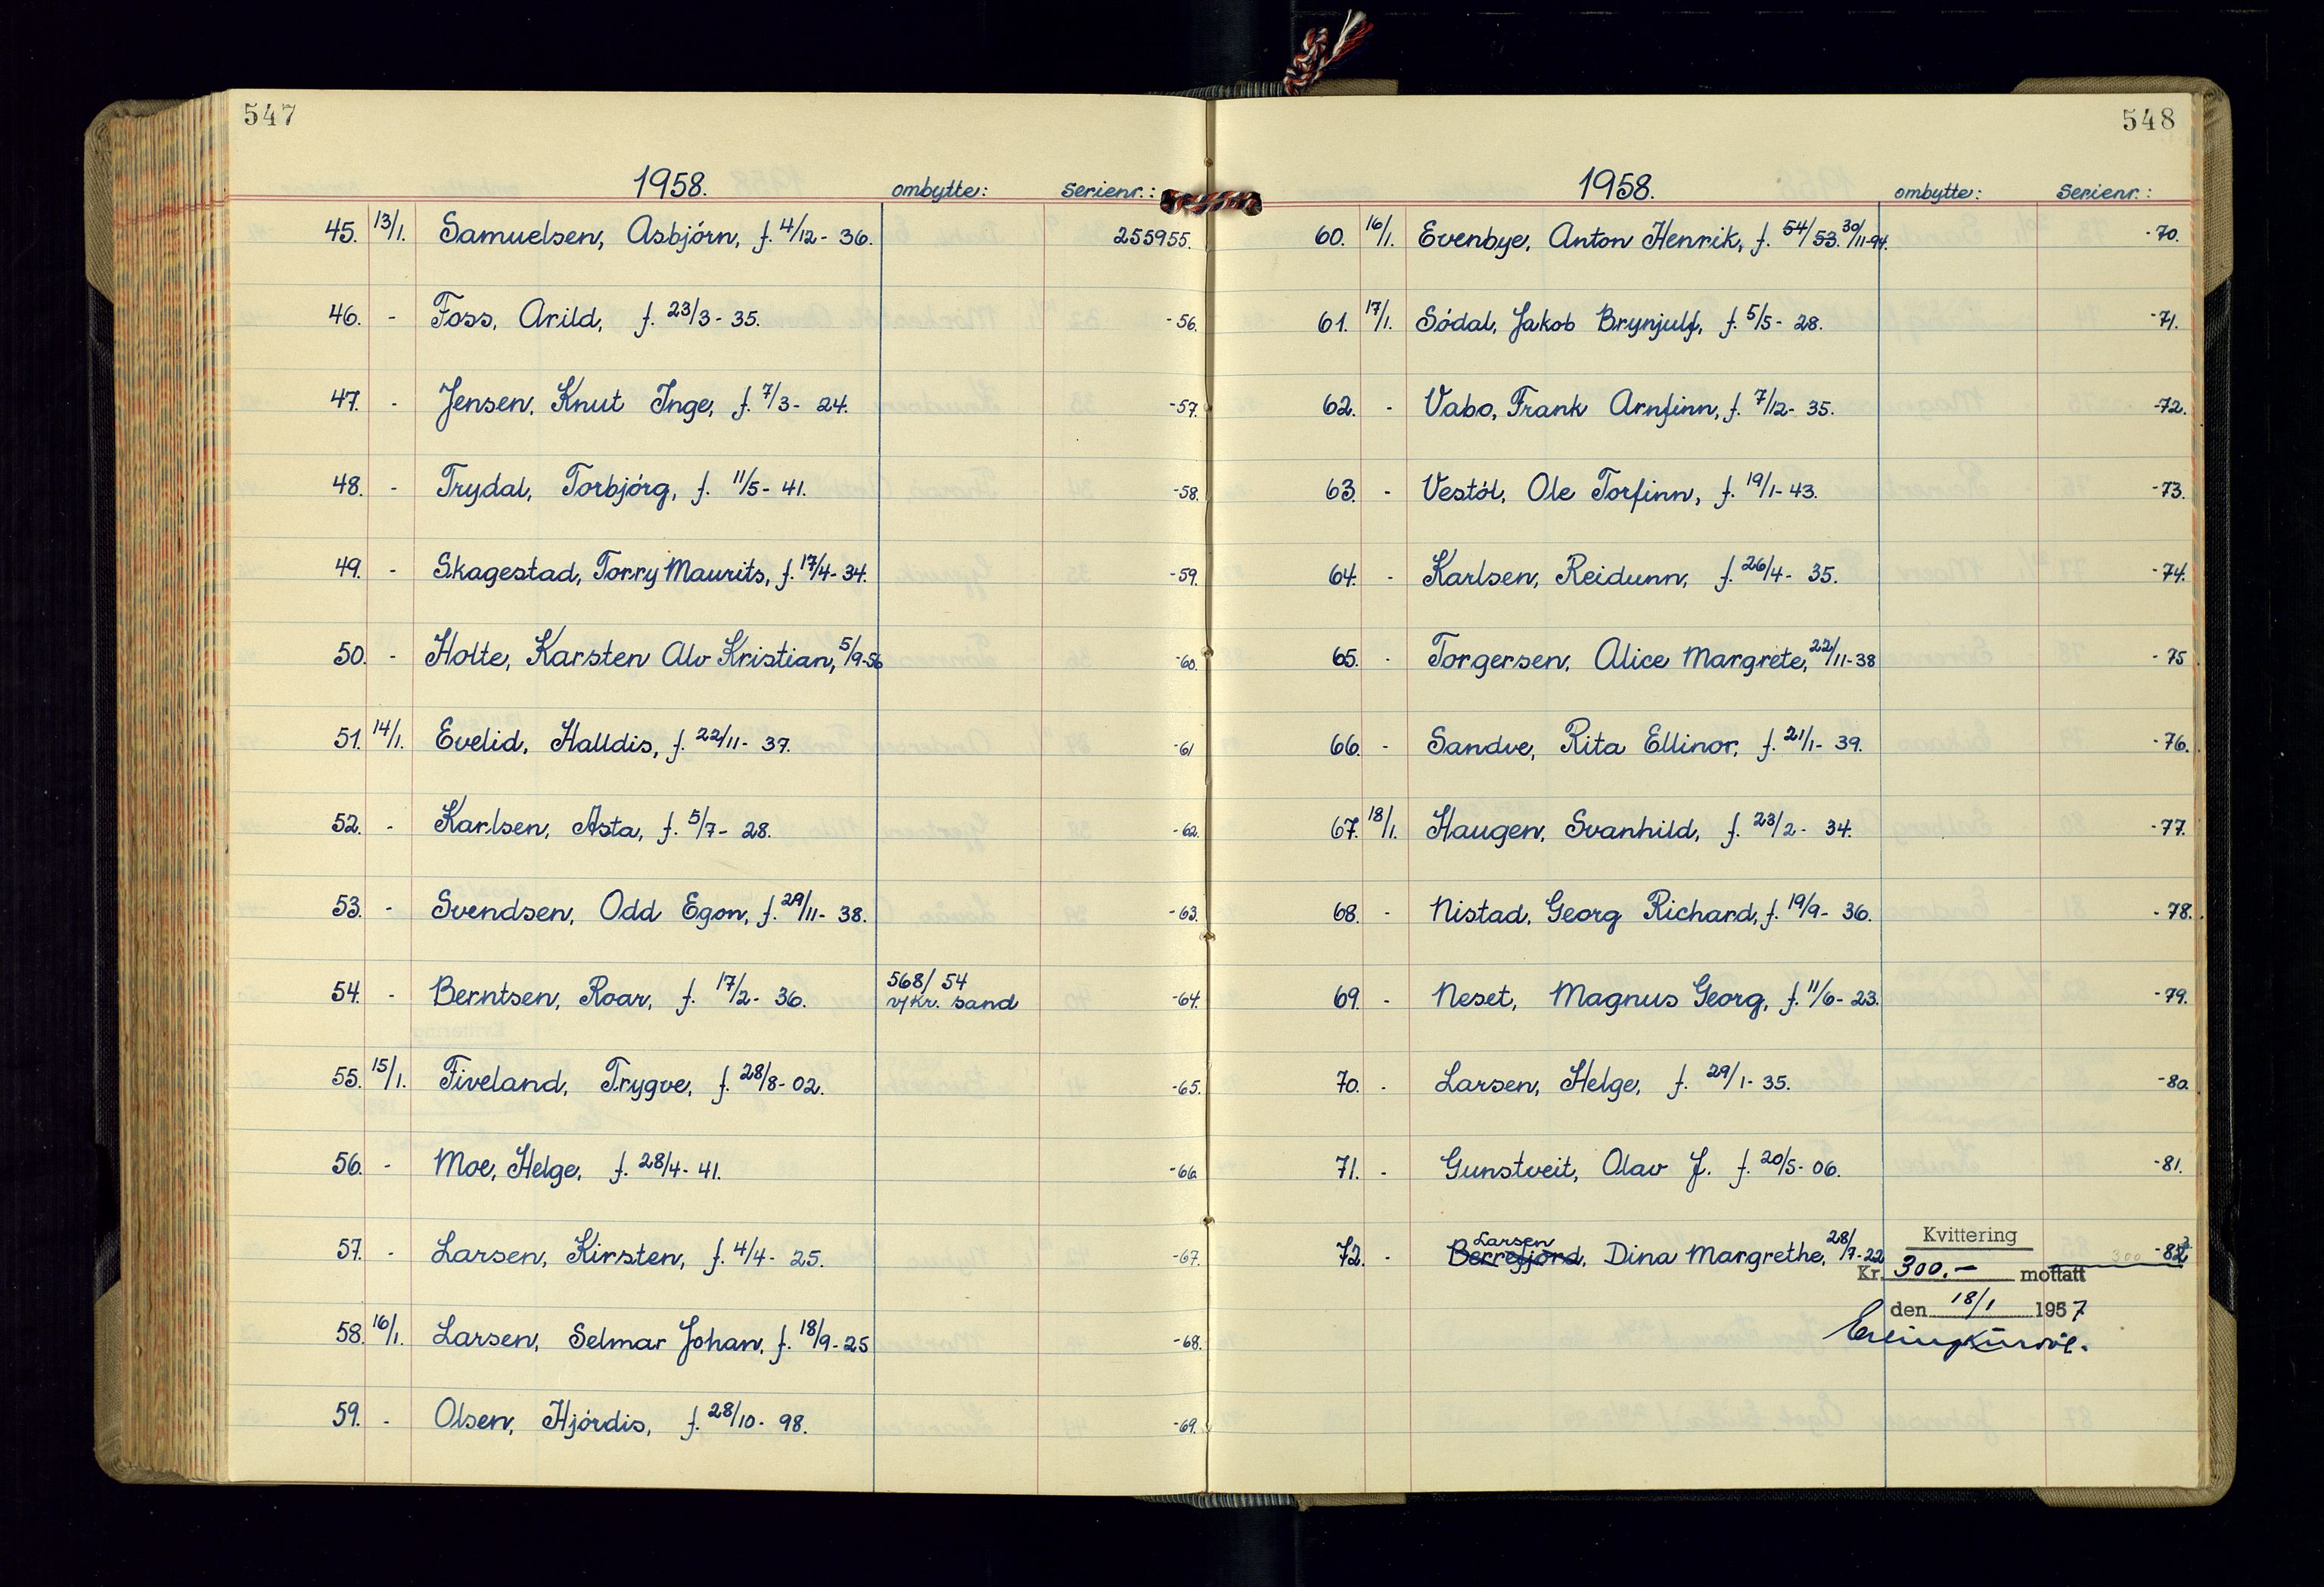 547
1958. ombytte: Serienr.:
45. 13/1. Samuelsen, Asbjörn, f. 4/12- 36. 255955.
46. - Foss, Arild, f. 23/3- 35. -56.
47. - Jensen, Knut Inge, f. 7/3- 24. -57.
48. - Trydal, Torbjörg, f. 11/5- 41. -58.
49. - Skagestad, Torry Maurits, f. 17/4- 34. -59.
50. - Holte, Karsten Alv Kristian, 5/9-56 -60.
51. 14/1. Evelid, Halldis, f. 22/11- 37. -61
52. - Karlsen, Asta, f. 5/7- 28. -62.
53. - Svendsen, Odd Egon, f. 29/11- 38. -63.
54. - Berntsen, Roar, f. 17/2- 36. 568/54 -64.
v/Kr. sand
55. 15/1. Fiveland, Trygve, f. 28/8- 02. -65.
56. - Moe, Helge, f. 28/4- 41. -66.
57. - Larsen, Kirsten, f. 4/4- 25. -67.
58. 16/1. Larsen, Selmar Johan, f. 18/9- 25 -68.
59. - Olsen, Hjördis, f. 28/10- 98. -69.
548
1958. ombytte: Serienr.:
60. 16/1. Evenbye, Anton Henrik, f. 54/53. 30/11-94. -70.
61. 17/1. Södal, Jakob Brynjulf, f. 5/5- 28. -71.
62. - Vabo, Frank Arnfinn, f. 7/12- 35. -72.
63. - Vestöl, Ole Torfinn, f. 19/1- 43. -73.
64. - Karlsen, Reidunn, f. 26/4- 35. -74.
65. - Torgersen, Alice Margrete, 22/11-38 -75
66. - Sandve, Rita Ellinor, f. 21/1- 39. -76.
67. 18/1. Haugen, Svanhild, f. 23/2- 34. -77.
68. - Nistad, Georg Richard, f. 19/9- 36. -78.
69. - Neset, Magnus Georg, f. 11/6- 23. -79.
70. - Larsen, Helge, f. 29/1- 35. -80.
71. - Gunstveit, Olav J. f. 20/5- 06. -81.
Larsen
72. - Berrefjord, Dina Margrethe, 28/7-22 300 -82
Kvittering
Kr. 300.- mottatt
den 18/1 1957